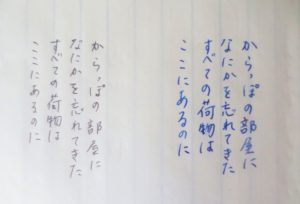 からっぽの部屋に
なにかを忘れてきた
すべての荷物は
ここにあるのに
からっぽの部屋に
なにかを忘れてきた
すべての荷物は
ここにあるのに